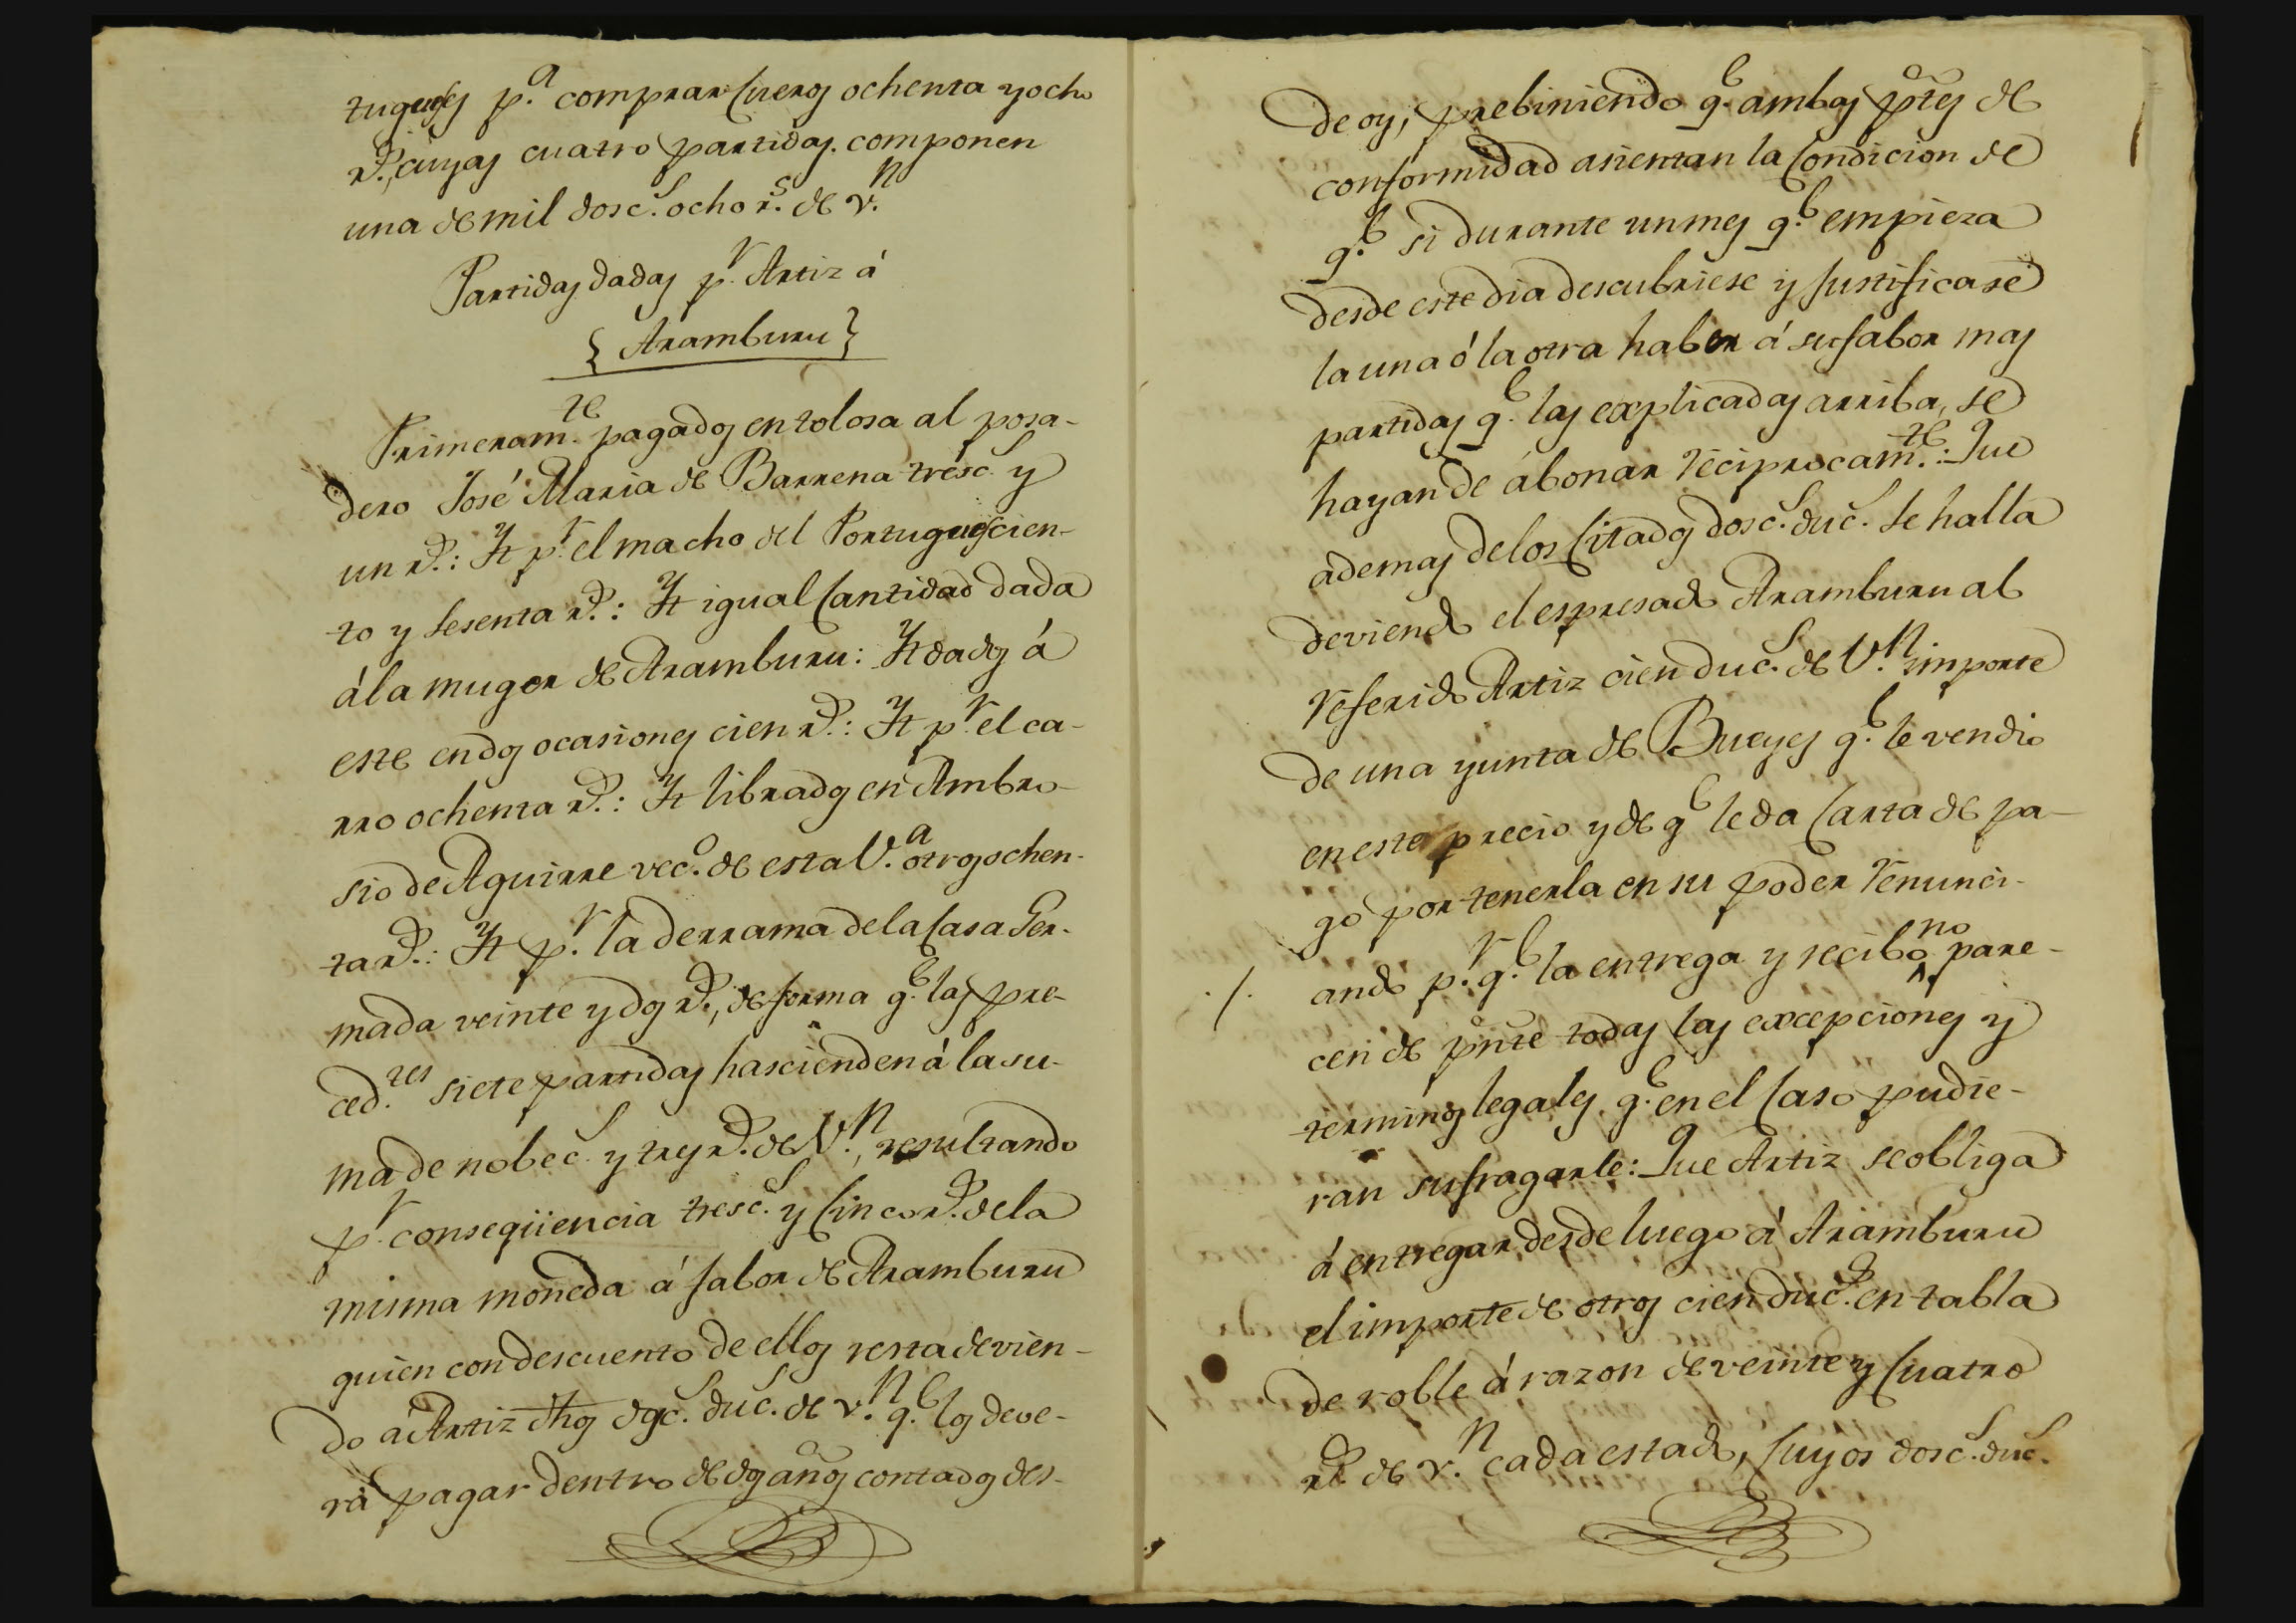 tugues p.ª comprar Cueros ochenta y ocho
r.ˢ, cuyas cuatro partidas componen
una de mil dosc.ˢ ocho r.ˢ de v.ⁿ
Partidas dadas p.ʳ Artiz á
{ Aramburu }
Primeram.te pagados en tolosa al posa-
dero José Maria de Barrena tresc.ˢ y
un r.ˢ: Yt p.ʳ el macho del Portugues cien-
to y sesenta r.ˢ: Yt igual Cantidad dada
á la muger de Aramburu: Yt dados á
este en dos ocasiones cien r.ˢ: Yt p.ʳ el ca-
rro ochenta r.ˢ: Yt librados en Ambro-
sio de Aguirre vec.º de esta V.ª otros ochen-
ta r.ˢ: Yt p.ʳ la derrama de la Casa Ger-
mada veinte y dos r.ˢ, de forma q.e las pre-
ced.tes siete partidas hascienden á la su-
ma de nobec.ˢ y tres r.ˢ de V.ⁿ, resultando
p.ʳ conseqüencia tresc.ˢ y Cinco r.ˢ de la
misma moneda á fabor de Aramburu
quien con descuento de ellos resta devien-
do á Artiz dhos dosc.ˢ duc.ˢ de v.ⁿ q.e los deve-
rá pagar dentro de dos años contados des-
de oy, prebiniendo q.e ambas ptes de
conformidad asientan la Condicion de
q.e si durante un mes q.e empieza
desde este dia descubriese y Justificase
la una ó la otra haber á su fabor mas
partidas q.e las explicadas arriba, se
hayan de ábonar reciprocam.te: Que
ademas de los Citados dosc.ˢ duc.ˢ se halla
deviendo el espresado Aramburu al
referido Artiz cien duc.ˢ de V.ⁿ importe
de una yunta de Bueyes q.e le vendio
en este precio y de q.e le da Carta de pa-
go por tenerla en su poder renunci-
./. ando p.ʳ q.e la entrega y recibo no pare-
cen de pnte todas las excepciones y
terminos legales q.e en el Caso pudie-
ran sufragarle: Que Artiz se obliga
á entregar desde luego á Aramburu
el importe de otros cien duc.ˢ en tabla
de roble á razon de veinte y Cuatro
r.ˢ de v.ⁿ cada estado, Cuyos dosc.ˢ duc.ˢ